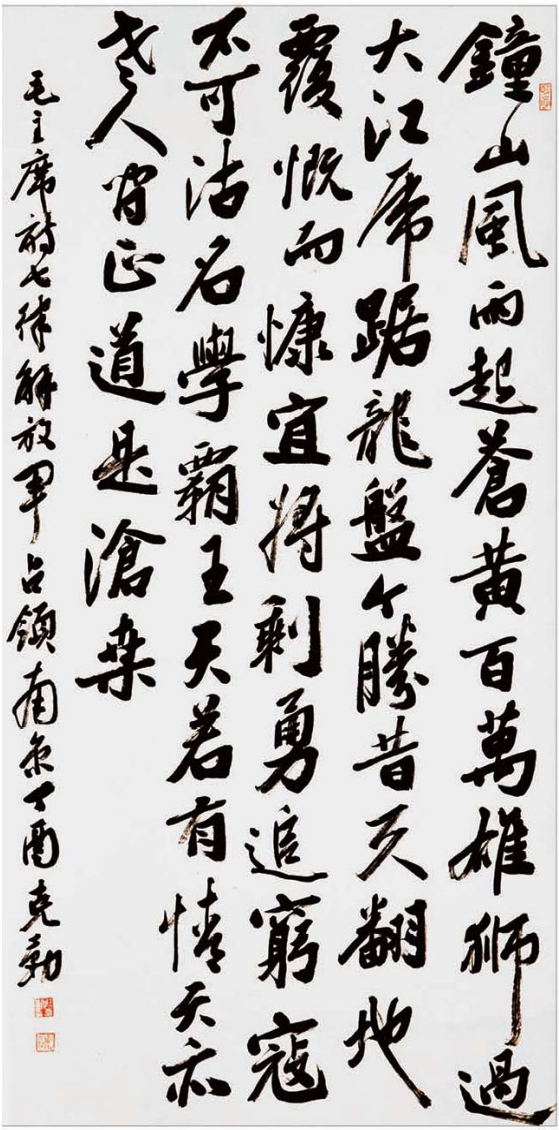 鐘山風雨起蒼黃百萬雄獅過
大江虎踞龍盤今勝昔天翻地
覆慨而慷宜將剩勇追窮寇
不可沽名學霸王天若有情天亦
老人間正道是滄桑
毛主席詩七律解放軍占領南京丁酉克勤